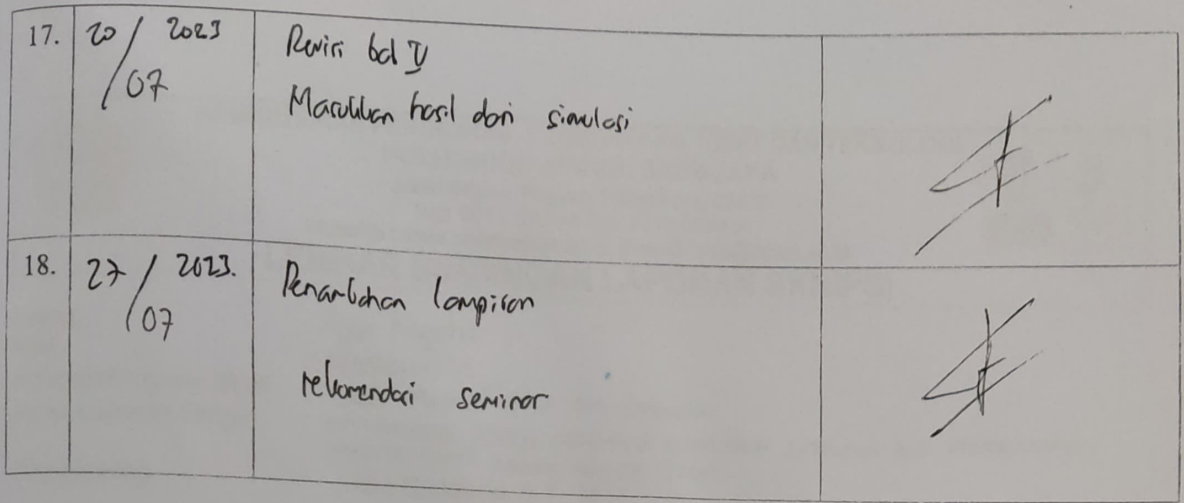 17. 20/07 2023
Revisi bab V
Masukkan hasil dari simulasi
18. 27/07 2023.
Penambahan lampiran
rekomendasi seminar